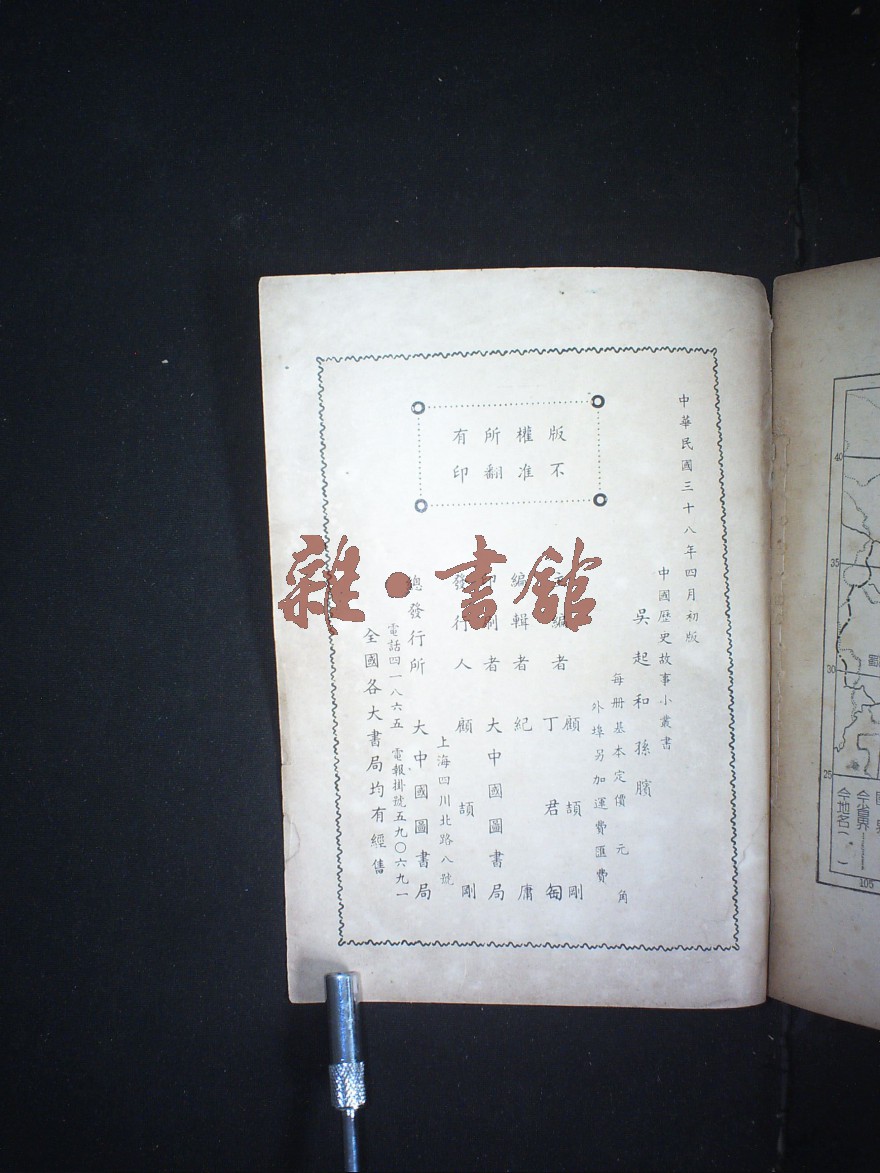 中華民國三十八年四月初版
中國歷史故事小叢書
吳起和孫臏
每冊基本定價 元 角
外埠另加運費匯費
版權所有
不准翻印
主編者 顧頡剛
丁君匋
編輯者 紀庸
印刷者 大中國圖書局
發行人 顧頡剛
上海四川北路八號
總發行所 大中國圖書局
電話四一八六五 電報掛號五九〇六九一
全國各大書局均有經售
雜·書館
40
35
30
25
105
今省界
今地名( )